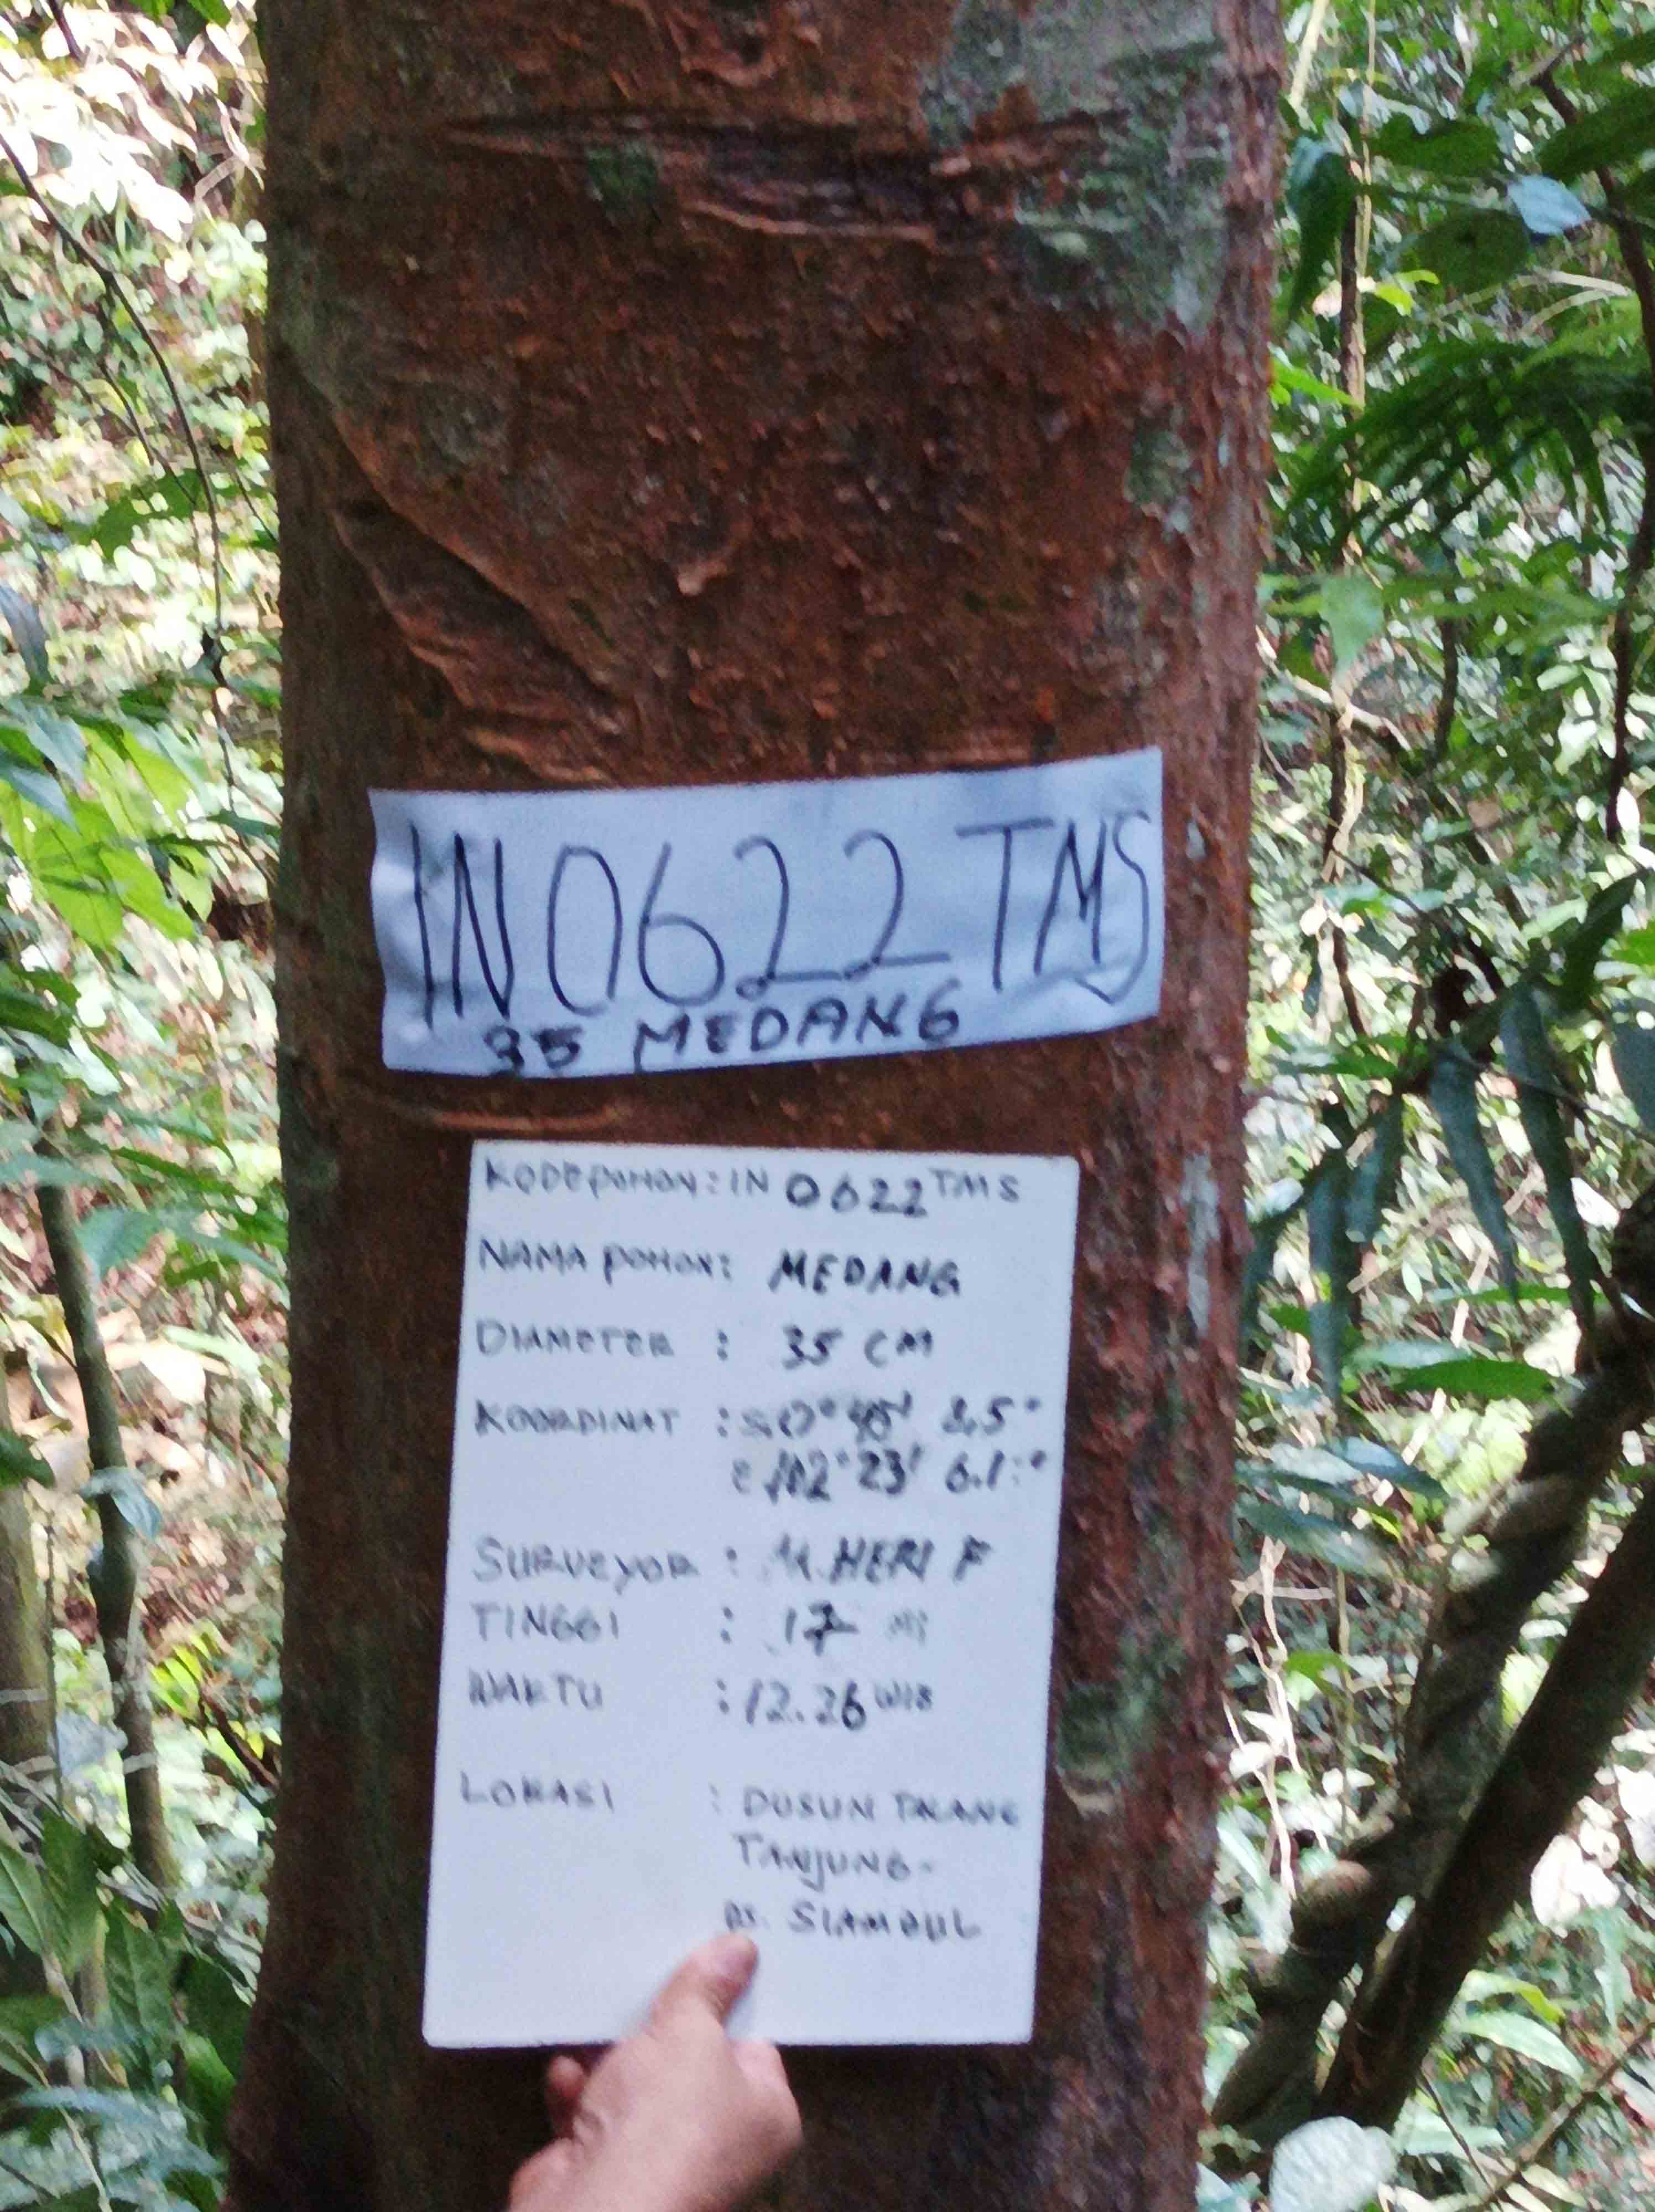 IN0622TMS
35 MEDANG
KODEPOHON: IN 0622 TMS
NAMA POHON: MEDANG
DIAMETER : 35 CM
KOORDINAT :
E 102° 23' 6.1"
SURVEYOR : M. HERI F
TINGGI : 17
WAKTU : 12.26 WIB
LOKASI : DUSUN TALANG
TANJUNG-
DS. SIAMBUL